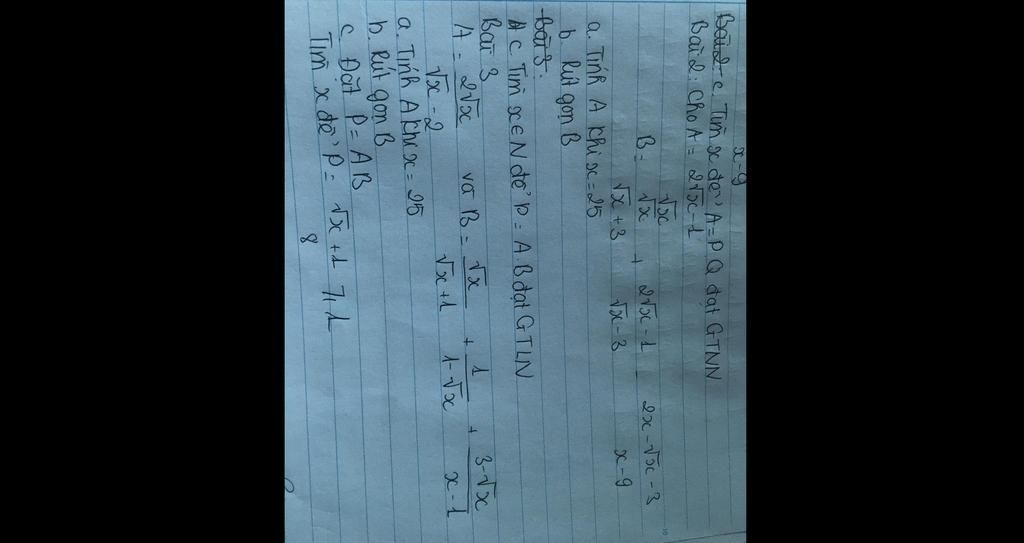 x-9
c. Tìm x để A = P Q đạt GTNN
Bài 2: Cho A = 2√x-1
√x
B = √x + 2√x-1 - 2x-√x-3
√x+3 √x-3 x-9
a. Tính A khi x = 25
b. Rút gọn B
c. Tìm x∈N để P = A.B đạt GTLN
Bài 3
A = 2√x và B = √x + 1 + 3-√x
√x-2 √x+1 1-√x x-1
a. Tính A khi x = 25
b. Rút gọn B
c. Đặt P = AB
Tìm x để P = √x+1 ≥ 1
8